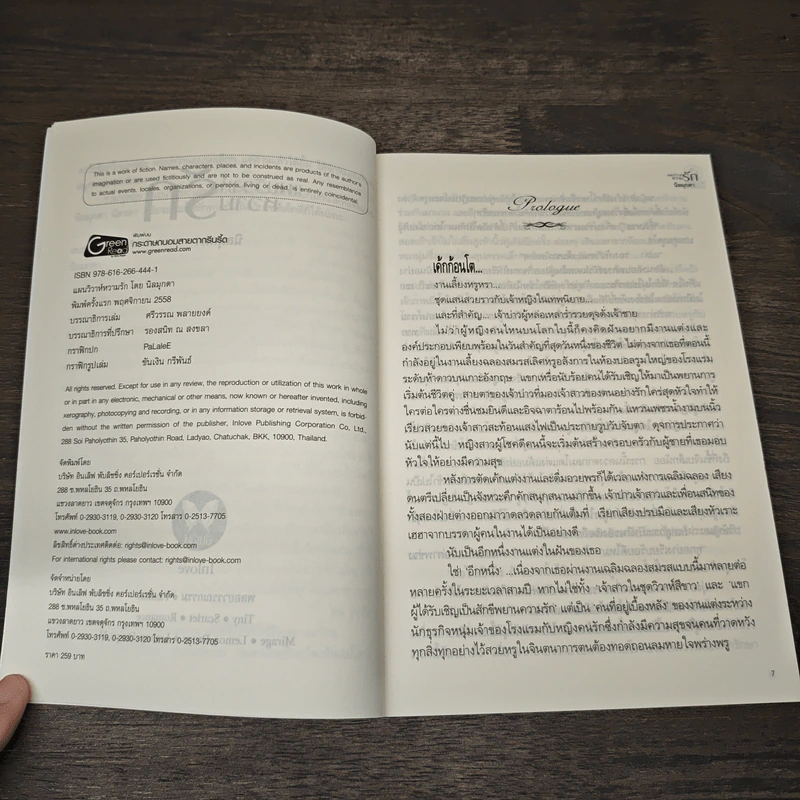 This is a work of fiction. Names, characters, places, and incidents are products of the author's
imagination or are used fictitiously and are not to be construed as real. Any resemblance
to actual events, locales, organizations, or persons, living or dead, is entirely coincidental.
Green
Read
พิมพ์บน
กระดาษถนอมสายตากรีนรี้ด
www.greenread.com
ISBN 978-616-266-444-1
แผนวิวาห์หวามรัก โดย นิลมุกดา
พิมพ์ครั้งแรก พฤศจิกายน 2558
บรรณาธิการเล่ม ศรีวรรณ พลายยงค์
บรรณาธิการที่ปรึกษา รองสนิท ณ สงขลา
กราฟิกปก PaLaleE
กราฟิกรูปเล่ม ขันเงิน กรีพันธ์
All rights reserved. Except for use in any review, the reproduction or utilization of this work in whole
or in part in any electronic, mechanical or other means, now known or hereafter invented, including
xerography, photocopying and recording, or in any information storage or retrieval system, is forbid-
den without the written permission of the publisher, Inlove Publishing Corporation Co., Ltd.,
288 Soi Paholyothin 35, Paholyothin Road, Ladyao, Chatuchak, BKK, 10900, Thailand.
จัดพิมพ์โดย
บริษัท อินเลิฟ พับลิชชิ่ง คอร์เปอร์เรชั่น จำกัด
288 ซ.พหลโยธิน 35 ถ.พหลโยธิน
แขวงลาดยาว เขตจตุจักร กรุงเทพฯ 10900
โทรศัพท์ 0-2930-3119, 0-2930-3120 โทรสาร 0-2513-7705
www.inlove-book.com
ลิขสิทธิ์ต่างประเทศติดต่อ: rights@inlove-book.com
For international rights please contact: rights@inlove-book.com
จัดจำหน่ายโดย
บริษัท อินเลิฟ พับลิชชิ่ง คอร์เปอร์เรชั่น จำกัด
288 ซ.พหลโยธิน 35 ถ.พหลโยธิน
แขวงลาดยาว เขตจตุจักร กรุงเทพฯ 10900
โทรศัพท์ 0-2930-3119, 0-2930-3120 โทรสาร 0-2513-7705
ราคา 259 บาท
รัก
นิลมุกดา
Prologue
เค้กก้อนโต...
งานเลี้ยงหรูหรา...
ชุดแสนสวยราวกับเจ้าหญิงในเทพนิยาย...
และที่สำคัญ... เจ้าบ่าวผู้หล่อเหลาร่ำรวยดุจดั่งเจ้าชาย
ไม่ว่าผู้หญิงคนไหนบนโลกใบนี้ก็คงคิดฝันอยากมีงานแต่งและ
องค์ประกอบเพียบพร้อมในวันสำคัญที่สุดวันหนึ่งของชีวิต ไม่ต่างจากเธอที่ตอนนี้
กำลังอยู่ในงานเลี้ยงฉลองสมรสเลิศหรูอลังการในห้องบอลรูมใหญ่ของโรงแรม
ระดับห้าดาวบนเกาะอังกฤษ แขกเหรื่อนับร้อยคนได้รับเชิญให้มาเป็นพยานการ
เริ่มต้นชีวิตคู่ สายตาของเจ้าบ่าวที่มองเจ้าสาวของตนอย่างรักใคร่สุดหัวใจทำให้
ใครต่อใครต่างชื่นชมยินดีและอิจฉาตาร้อนไปพร้อมกัน แหวนเพชรน้ำงามบนนิ้ว
เรียวสวยของเจ้าสาวสะท้อนแสงไฟเป็นประกายวูบวับจับตา ดุจการประกาศว่า
นับแต่นี้ไป หญิงสาวผู้โชคดีคนนี้จะเริ่มต้นสร้างครอบครัวกับผู้ชายที่เธอมอบ
หัวใจให้อย่างมีความสุข
หลังการตัดเค้กแต่งงานและดื่มอวยพรก็ได้เวลาแห่งการเฉลิมฉลอง เสียง
ดนตรีเปลี่ยนเป็นจังหวะคึกคักสนุกสนานมากขึ้น เจ้าบ่าวเจ้าสาวและเพื่อนสนิทของ
ทั้งสองฝ่ายต่างออกมาวาดลวดลายกันเต็มที่ เรียกเสียงปรบมือและเสียงหัวเราะ
เฮฮาจากบรรดาผู้คนในงานได้เป็นอย่างดี
นับเป็นอีกหนึ่งงานแต่งในฝันของเธอ
ใช่ 'อีกหนึ่ง' ...เนื่องจากเธอผ่านงานเฉลิมฉลองสมรสแบบนี้มาหลายต่อ
หลายครั้งในระยะเวลาสามปี หากไม่ใช่ทั้ง 'เจ้าสาวในชุดวิวาห์สีขาว' และ 'แขก
ผู้ได้รับเชิญเป็นสักขีพยานความรัก' แต่เป็น 'คนที่อยู่เบื้องหลัง' ของงานแต่งระหว่าง
นักธุรกิจหนุ่มเจ้าของโรงแรมกับหญิงคนรักซึ่งกำลังมีความสุขจนคนที่วาดหวัง
ทุกสิ่งทุกอย่างไว้สวยหรูในจินตนาการตนต้องทอดถอนลมหายใจพร่างพรู
7